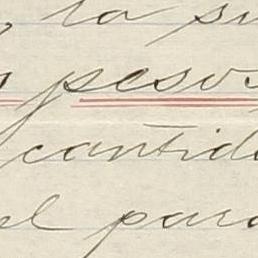 , la su
pesos
cantida
el para